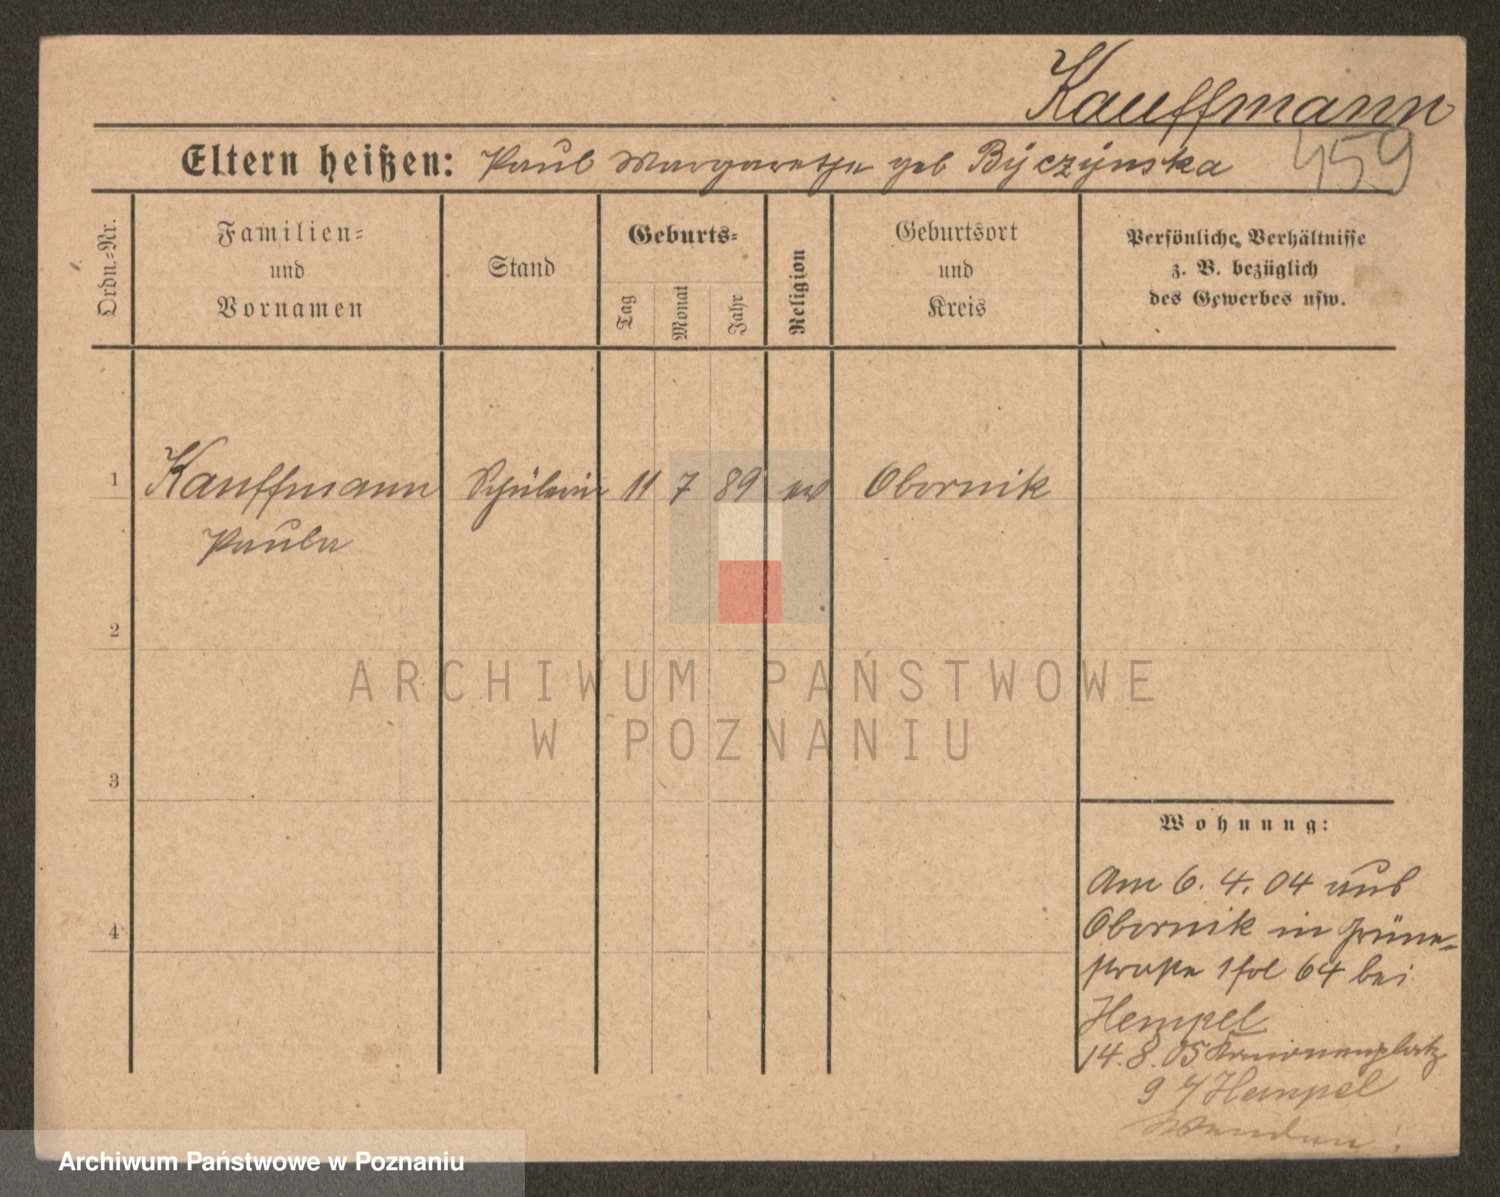 Kauffmann
459
Eltern heißen: Paul Margarethe geb Byczynska
Ordn.-Nr.
Familien-
und
Vornamen
Stand
Geburts-
Tag
Monat
Jahr
Religion
Geburtsort
und
Kreis
Persönliche Verhältnisse
z. B. bezüglich
des Gewerbes usw.
1 Kauffmann Schülerin 11 7 89 ev Obornik
Paula
2
3
4
ARCHIWUM PAŃSTWOWE
W POZNANIU
Wohnung:
Am 6. 4. 04 aus
Obornik in Grüne-
straße 64 bei
Hempel
14. 8. 05
9 Hempel
Wenden!
Archiwum Państwowe w Poznaniu